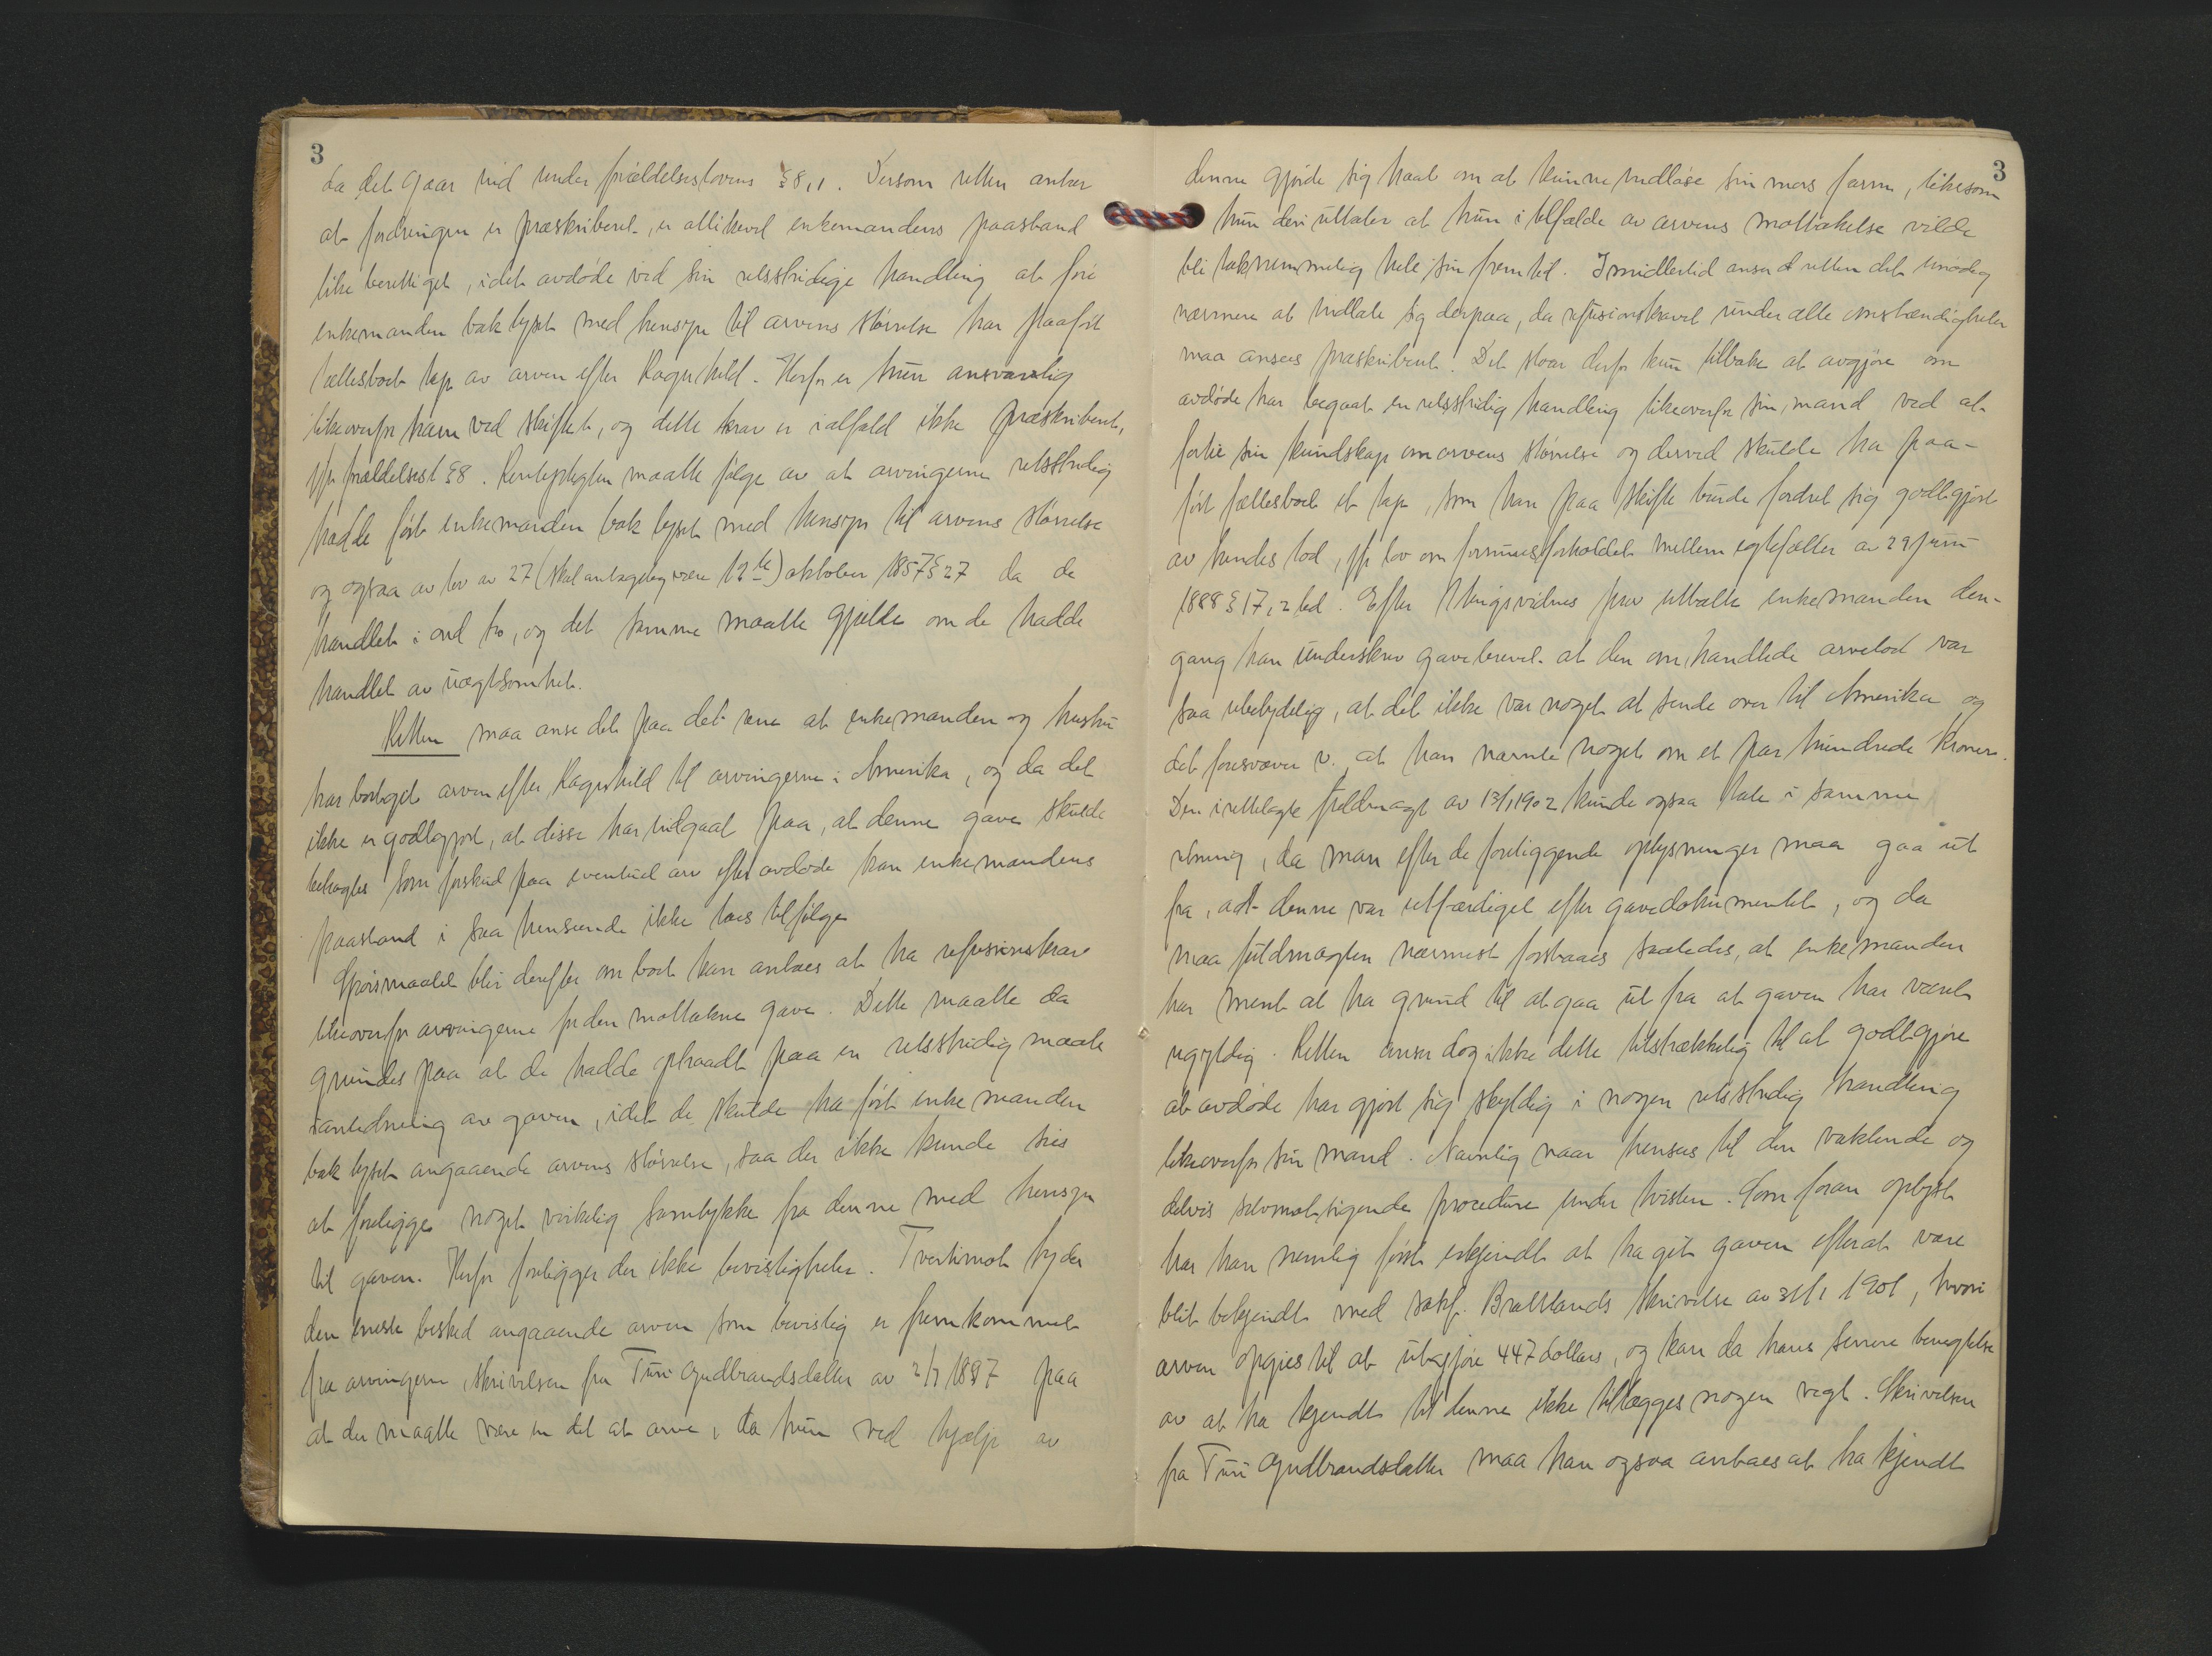 3
da det gaar ind under forældelseslovens § 8,1. Dersom retten antar
at fordringen er præskriberet, er allikevel enkemandens paastand
like berettiget, idet avdøde ved sin retsstridige handling at føre
enkemanden bak lyset med hensyn til arvens størrelse har paaført
fællesboet tap av arven efter Ragnhild. Herfor er hun ansvarlig
likeoverfor ham ved skiftet, og dette krav er ialfald ikke præskriberet,
jfr forældelsesl § 8. Renteplegten maatte følge av at arvingerne retsstridig
hadde ført enkemanden bak lyset med hensyn til arvens størrelse
og ogsaa av lov av 27 (skal antagelig være 12te) oktober 1857 § 27 da de
handlet i ond tro, og det samme maatte gjælde om de hadde
handlet av uagtsomhet.
Retten maa anse det paa det rene at enkemanden og hustru
har bortgit arven efter Ragnhild til arvingerne i Amerika, og da det
ikke er godtgjort, at disse har indgaat paa, at denne gave skulde
betragtes som forskud paa eventuel arv efter avdøde kan enkemandens
paastand i saa henseende ikke taes tilfølge
Spørsmaalet blir derefter om boet kan antaes at ha refusionskrav
likeoverfor arvingerne for den mottakne gave. Dette maatte da
grundes paa at de hadde optraadt paa en retsstridig maate
i anledning av gaven, idet de skulde ha ført enkemanden
bak lyset angaaende arvens størrelse, saa der ikke kunde sies
at foreligge noget virkelig samtykke fra denne med hensyn
til gaven. Herfor foreligger der ikke bevisligheter. Tvertimot tyder
den eneste besked angaaende arven som bevislig er fremkommet
fra arvingerne, skrivelsen fra Turi Gudbrandsdatter av 2/7 1897 paa
at der maatte være en del at arve, da hun ved hjælp av
3
denne gjorde sig haab om at kunne indløse sin mors farm, likesom
hun deri uttaler at hun i tilfælde av arvens mottakelse vilde
bli taknemmelig hele sin fremtid. Imidlertid anser retten det unødig
nærmere at indlate sig derpaa, da refusionskravet under alle omstændigheter
maa ansees præskriberet. Det staar derfor kun tilbake at avgjøre om
avdøde har begaat en retsstridig handling likeoverfor sin mand ved at
fortie sin kundskap om arvens størrelse og derved skulde ha paa-
ført fællesboet et tap, som han paa skifte burde fordret sig godtgjort
av hendes lod, jfr lov om formuesforholdet mellem egtefæller av 29 juni
1888 § 17, 2 led. Efter vidnes prov uttalte enkemanden den-
gang han underskrev gavebrevet at den omhandlede arvelod var
saa ubetydelig, at det ikke var noget at sende over til Amerika og
det foresvæver v. at han nævnte noget om et par hundrede kroner.
Den irettelagte fuldmagt av 13/1 1902 kunde ogsaa tale i samme
retning, da man efter de foreliggende oplysninger maa gaa ut
fra, at denne var utfærdiget efter gavedokumentet, og da
maa fuldmagten nærmest forstaaes saaledes, at enkemanden
har ment at ha grund til at gaa ut fra at gaven har været
ugyldig. Retten anser dog ikke dette tilstrækkelig til at godtgjøre
at avdøde har gjort sig skyldig i nogen retsstridig handling
likeoverfor sin mand. Navnlig naar henses til den vaklende og
delvis selvmotsigende procedure under tvisten. Som foran oplyst
har han nemlig først erkjendt at ha git gaven efterat være
blit bekjendt med sakf. Bratlands skrivelse av 31/1 1901, hvori
arven opgies til at utgjøre 447 dollars, og kan da hans senere benegtelse
av at ha kjendt til denne ikke tillægges nogen vegt. Skrivelsen
fra Turi Gudbrandsdatter maa han ogsaa antaes at ha kjendt